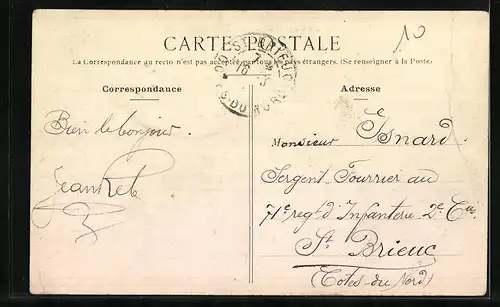 10
CARTE POSTALE
La Correspondance au recto n'est pas acceptée par tous les pays étrangers. (Se renseigner à la Poste)
Correspondance
Adresse
Bien le bonjour.
Monsieur Isnard
Sergent Fourrier au
71e regt d'Infanterie 2e Cie
St Brieuc
(Cotes du Nord)